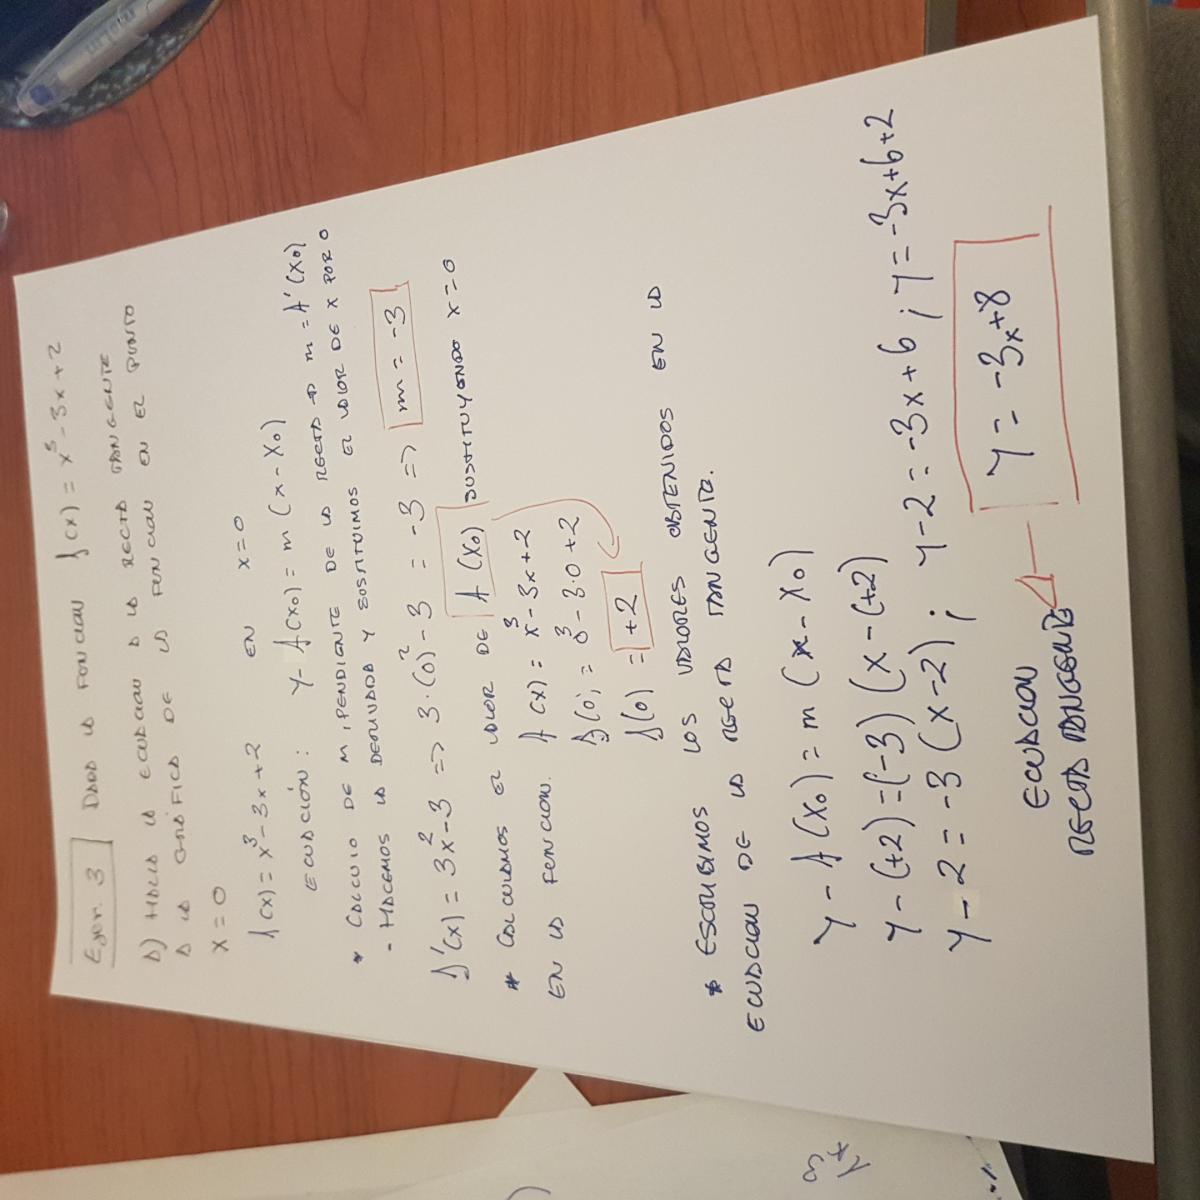 Ejer. 3 DADA LA FUNCIAN f(x) = x³-3x+2
a) HALLA LA ECUACIAN A LA RECTA TANGENTE
A LA GRÁFICA DE LA FUNCIAN EN EL PUNTO
x=0
f(x) = x³-3x+2 EN x=0
ECUACIÓN: Y-f(x₀) = m(x-x₀)
* CALCULO DE M, PENDIENTE DE LA RECTA → m=f'(x₀)
- HACEMOS LA DERIVADA Y SUSTITUIMOS EL VALOR DE X POR 0
f'(x) = 3x²-3 => 3·(0)²-3 = -3 => m=-3
* CALCULAMOS EL VALOR DE f(x₀) SUSTITUYENDO x=0
EN LA FUNCIAN. f(x) = x³-3x+2
f(0) = 0³-3·0+2
f(0) = +2
* ESCRIBIMOS LOS VALORES OBTENIDOS EN LA
ECUACIAN DE LA RECTA TANGENTE.
Y-f(x₀) = m(x-x₀)
Y-(+2)=(-3)(x-(+2)
Y-2=-3(x-2); Y-2=-3x+6; Y=-3x+6+2
ECUACIAN Y=-3x+8
RECTA TANGENTE